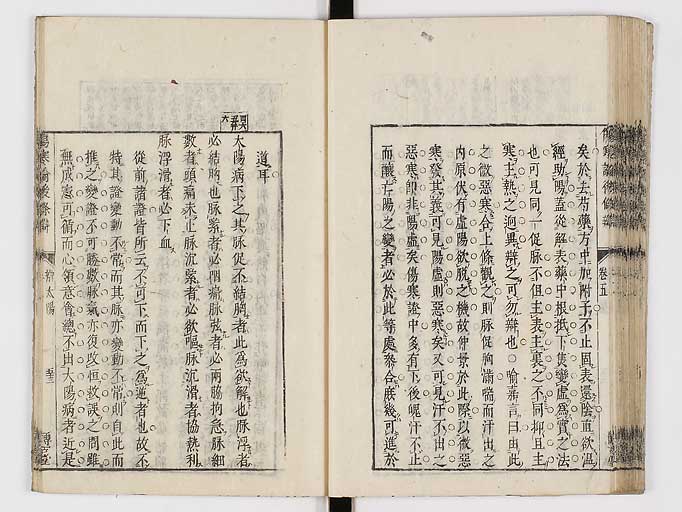 矣於去芍藥方中加附子不止固表還陰直欲温
經助陽蓋從解表藥中根抵下焦變虛爲實之法
也可見同一促脉不但主表主裏之不同抑且主
寒主熱之迥異辯之可勿辯也○喻嘉言曰由此
之微惡寒合上條觀之則脉促胸滿喘而汗出之
內原伏有虛陽欲脫之機故仲景於此際以微惡
寒發其義可見陽虛則惡寒矣又可見汗不出之
惡寒即非陽虛矣傷寒證中多有下後呃汗不止
而釀亡陽之變者必於此等處參合庶幾可進於
卷五
道耳
太陽病下之其脉促不結胸者此爲欲解也脉浮者
必結胸也脉緊者必咽痛脉弦者必兩脇拘急脉細
數者頭痛未止脉沉緊者必欲嘔脉沉滑者協熱利
脉浮滑者必下血
從前諸證皆所云不可下而下之爲逆者也故不
特其證變動不常而其脉亦變動不常則自此而
推之變證不可勝數脉氣亦復改恒救誤之間雖
無成憲可循而心領意會總不出太陽病者近是
傷寒論後條辯
辯太陽